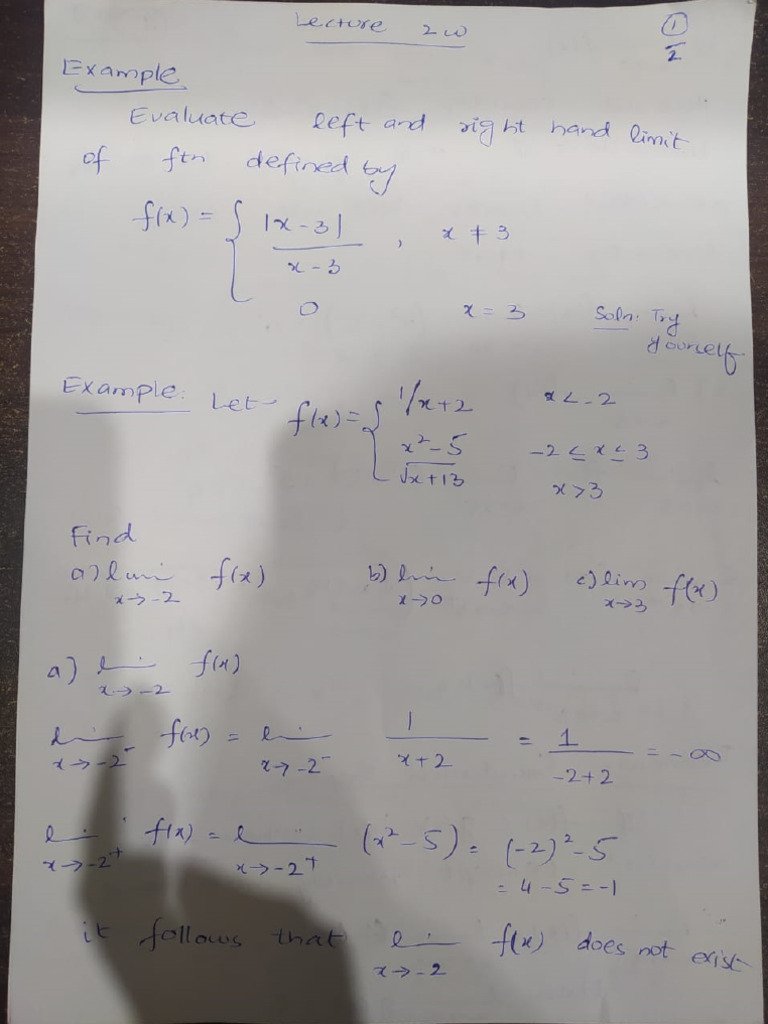 Lecture 2w
1/2
Example
Evaluate left and right hand limit
of ftn defined by
f(x) = { |x-3| / x-3 , x ≠ 3
0 x = 3 Soln: Try yourself
Example: Let f(x) = { 1/x+2 x < -2
x²-5 -2 ≤ x ≤ 3
√x+13 x > 3
Find
a) lim x→-2 f(x) b) lim x→0 f(x) c) lim x→3 f(x)
a) lim x→-2 f(x)
lim x→-2⁻ f(x) = lim x→-2⁻ 1 / x+2 = 1 / -2+2 = -∞
lim x→-2⁺ f(x) = lim x→-2⁺ (x²-5) = (-2)²-5
= 4-5 = -1
it follows that lim x→-2 f(x) does not exist